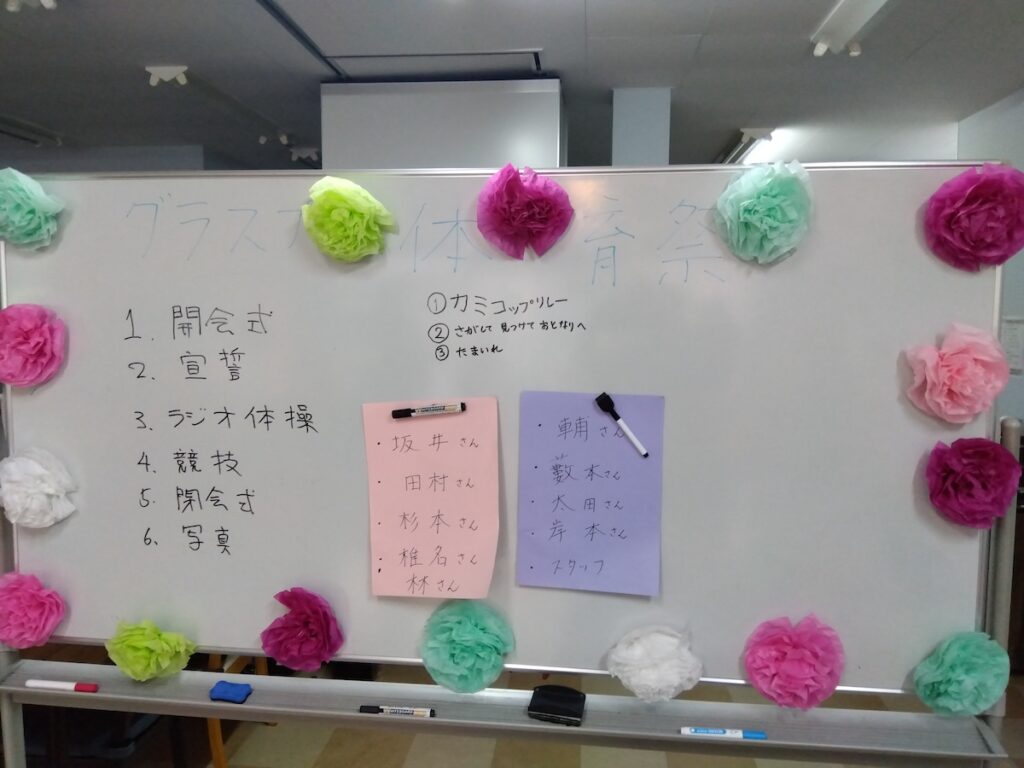 グラス 体育祭
1. 開会式
2. 宣誓
3. ラジオ体操
4. 競技
5. 閉会式
6. 写真
① カミコップリレー
② さがして見つけておとなりへ
③ たまいれ
・坂井さん
・田村さん
・杉本さん
・椎名さん
・林さん
・輔さん
・藪本さん
・太田さん
・岸本さん
・スタッフ